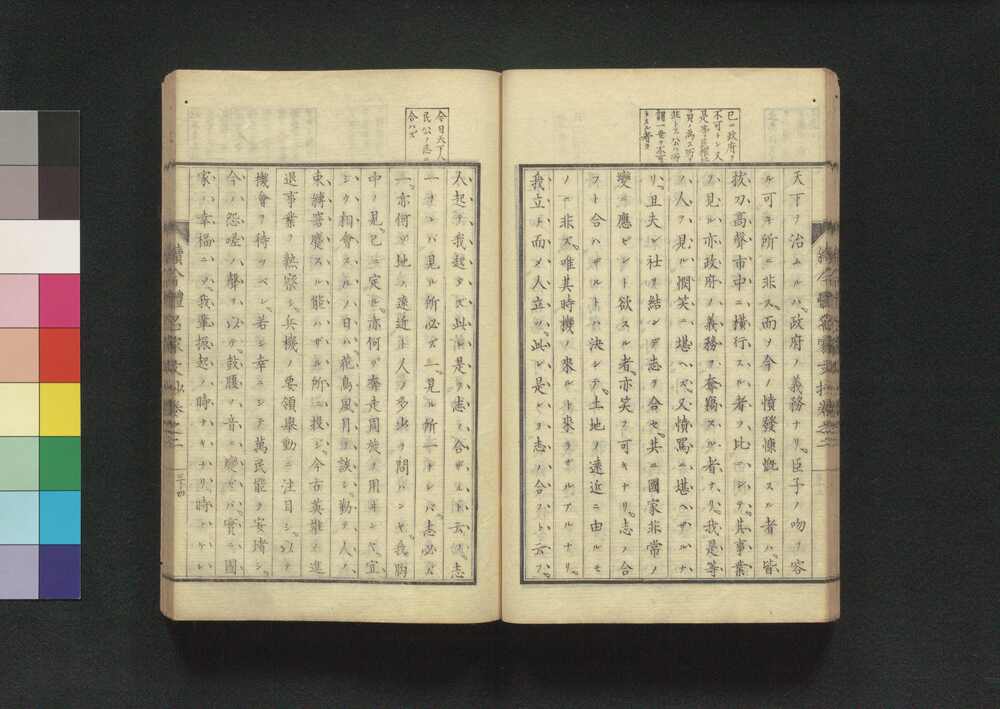 已ニ政府ヲ
不可トシ又
天下ヲ治ムルハ政府ノ義務ナリ。臣子ノ吻ヲ容
ル可キ所ニ非ス。而ソ今ノ憤發慷慨スル者ハ。皆
拔刀高聲市中ニ橫行スル者ヲ比ニシテ。其事業
ヲ見ル亦政府ノ義務ヲ奪竊スル者ナリ。我是等
ノ人ヲ見ル憫笑ニ堪ヘズ。又憤罵ニ堪ヘザルナ
リ。且夫レ社ヲ結ンデ志ヲ合セ。其ニ國家非常ノ
變ニ應ビント欲スル者。亦笑フ可キナリ。志ノ合
フト合ハザルトハ決シテ土地ノ遠近ニ由ルモ
ノニ非ズ。唯其時機ノ來ルト來ラザルアルナリ。
我立ト而メ人立ツ。此レ是レヲ志ノ合フト云フ。
今日天下人
民公ノ志
合ハズ
人起テ我起タズ此レ是ヲ志ノ合ザルト云フ。志
一ナレバ見ル所必ズ一。見ル所一ナレバ。志必ズ
一。亦何ゾ地ノ遠近ト人ノ多少ヲ問ハンヤ。我胸
中ノ見。已ニ定ル。亦何ゾ奔走周旋ヲ用ヰンヤ。宜
シク相會スルノ日ハ。花鳥風月ヲ談シ。勤テ人ノ
束縛窘蹙スル能ハザル所ニ投シ。今古英雄ノ進
退事業ヲ熟察シ。兵機ノ要領擧動ニ注目シ。以テ
機會ヲ待ツベシ。若シ幸ニシテ萬民能ク安堵シ。
今ノ怨嗟ノ聲ヲ以テ。鼓腹ノ音ニ變ゼバ。實ニ國
家ノ幸福ニソ。我輩振起ノ時ナキナリ。時ナケレ